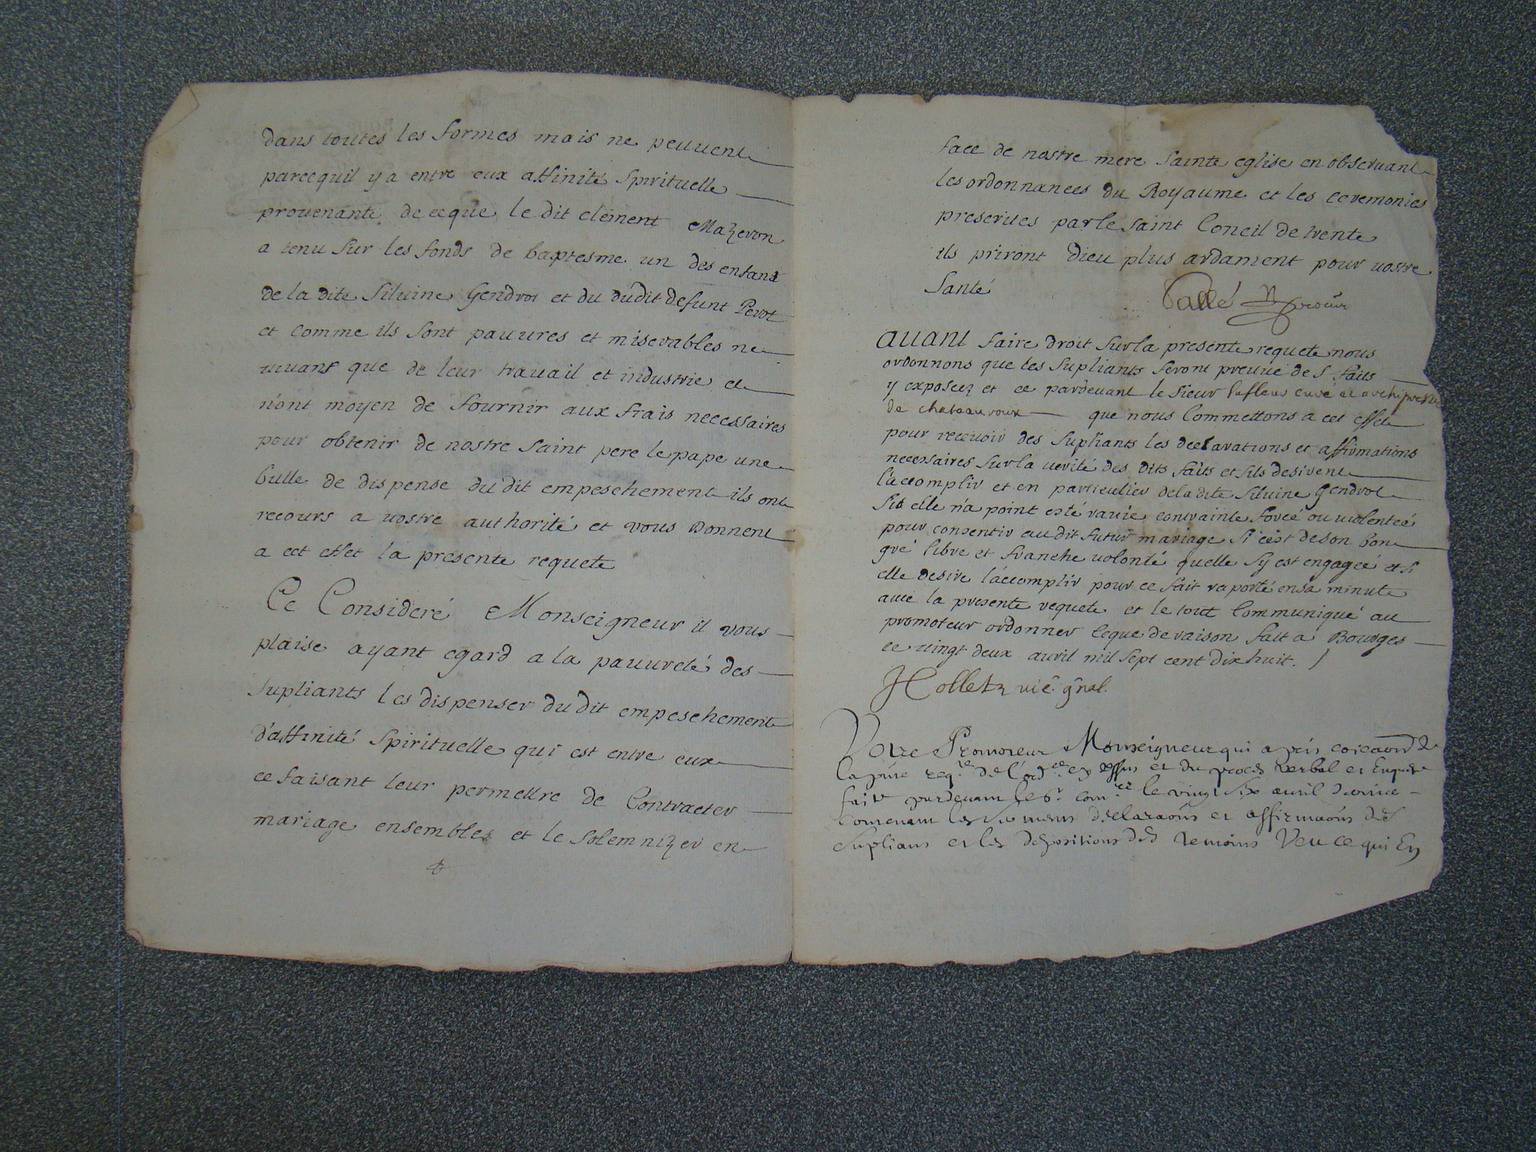 dans toutes les formes mais ne peuuent
parcequil y a entre eux affinité Spirituelle
prouenante de ceque le dit clement Mazeron
a tenu sur les fonds de baptesme un des enfans
de la dite Siluine Gendrot et du dudit defunt Perot
et comme ils sont pauures et miserables ne
uiuant que de leur trauail et industrie et
n'ont moyen de fournir aux frais necessaires
pour obtenir de nostre saint pere le pape une
bulle de dispense du dit empeschement ils ont
recours a uostre authorité et vous donnent
a cet effet la presente requete
Ce Consideré Monseigneur il vous
plaise ayant egard a la pauureté des
supliants les dispenser du dit empeschement
d'affinité spirituelle qui est entre eux
ce faisant leur permettre de Contracter
mariage ensembles et le solemnizer en
face de nostre mere sainte eglise en obseruant
les ordonnances du Royaume et les ceremonies
prescrites par le saint Concil de trente
ils priront dieu plus ardament pour uostre
santé
Vallé
auant faire droit sur la presente requete nous
ordonnons que les supliants feront preuue des faits
y exposeez et ce pardeuant le sieur curé et archiprestre
de chateauroux que nous Commettons a cet effet
pour receuoir des supliants les declarations et affirmations
necessaires sur la uerité des dits faits et sils desirent
l'accomplir et en particulier de la dite Siluine Gendrot
sit elle n'a point esté rauie contrainte forcé ou uiolenteé
pour consentir au dit futur mariage si c'est de son bon
gré libre et franche uolonté quelle s'y est engageé et si
elle desire l'accomplir pour ce fait raporté en sa minute
auec la presente requete et le tout Communiqué au
promoteur ordonner ceque de raison fait a Bourges
ce uingt deux auril mil sept cent dix huit.
Hollet uic gnal.
Votre Promoteur Monseigneur qui a pris
la req.te de l'ord.ce cy dessus et du proces verbal et Enqueste
faite pardeuant le S.r com.re le vingt six auril
Contenant les declaraons et affirmaons des
suplians et les depositions des temoins Veu ce qui En